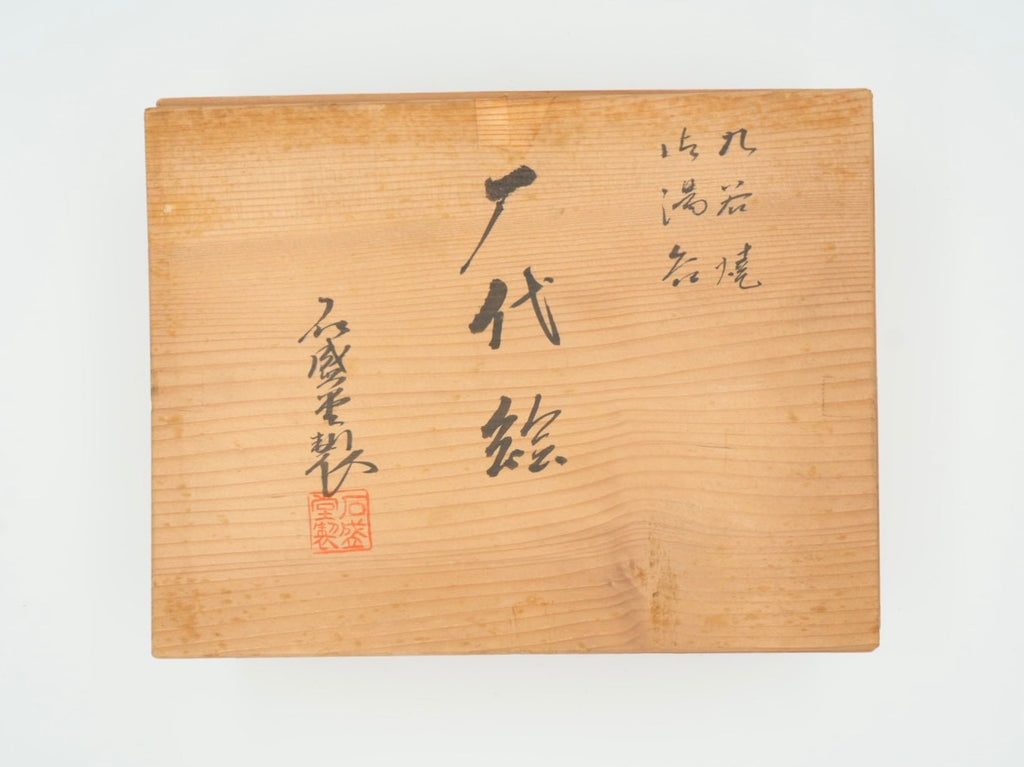 九谷焼
御湯呑
歴代絵
石盛堂製
石盛
堂製